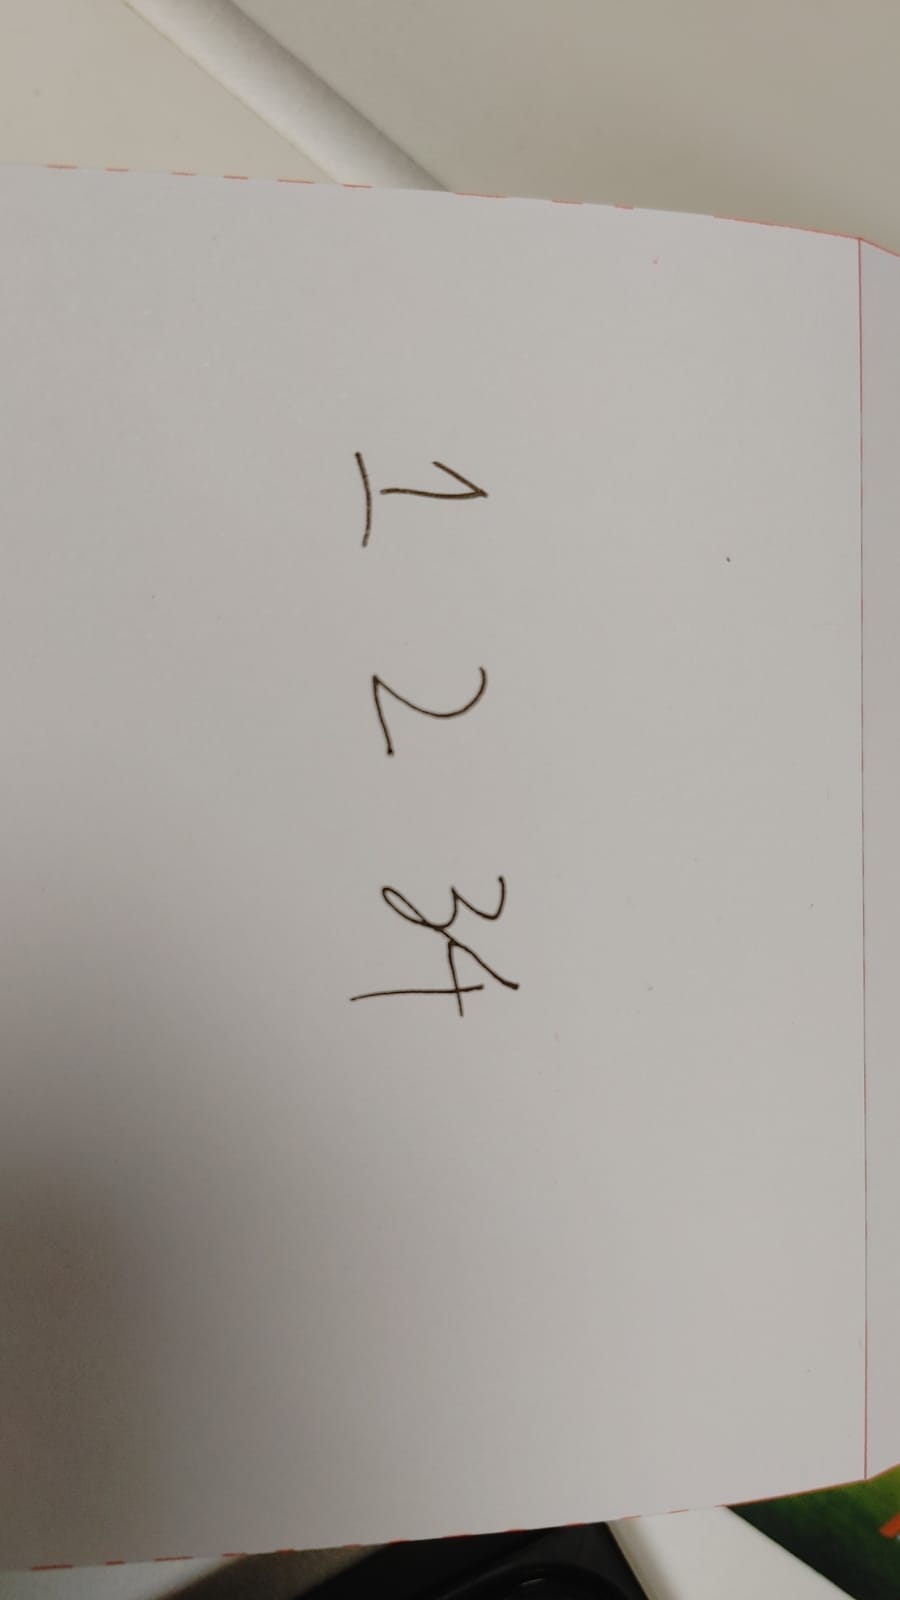 1 2 34